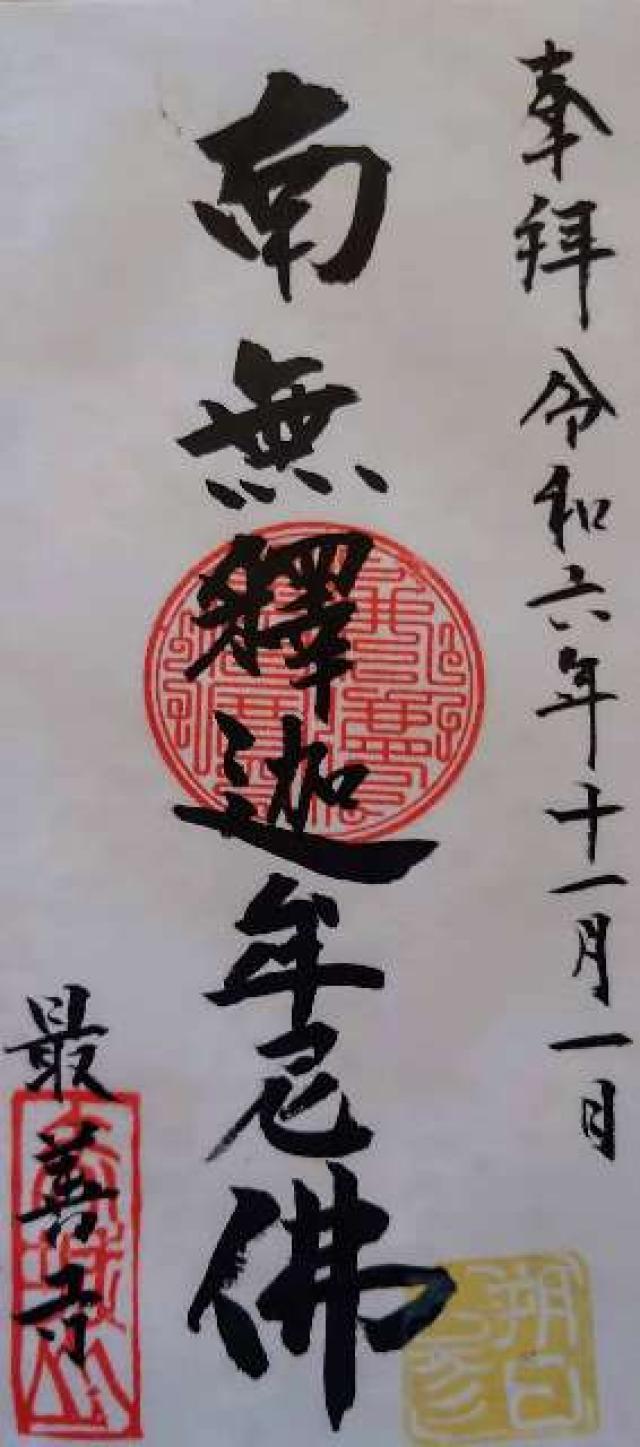 奉拜 令和六年十一月一日
南無釋迦牟尼佛
最善寺
朔日